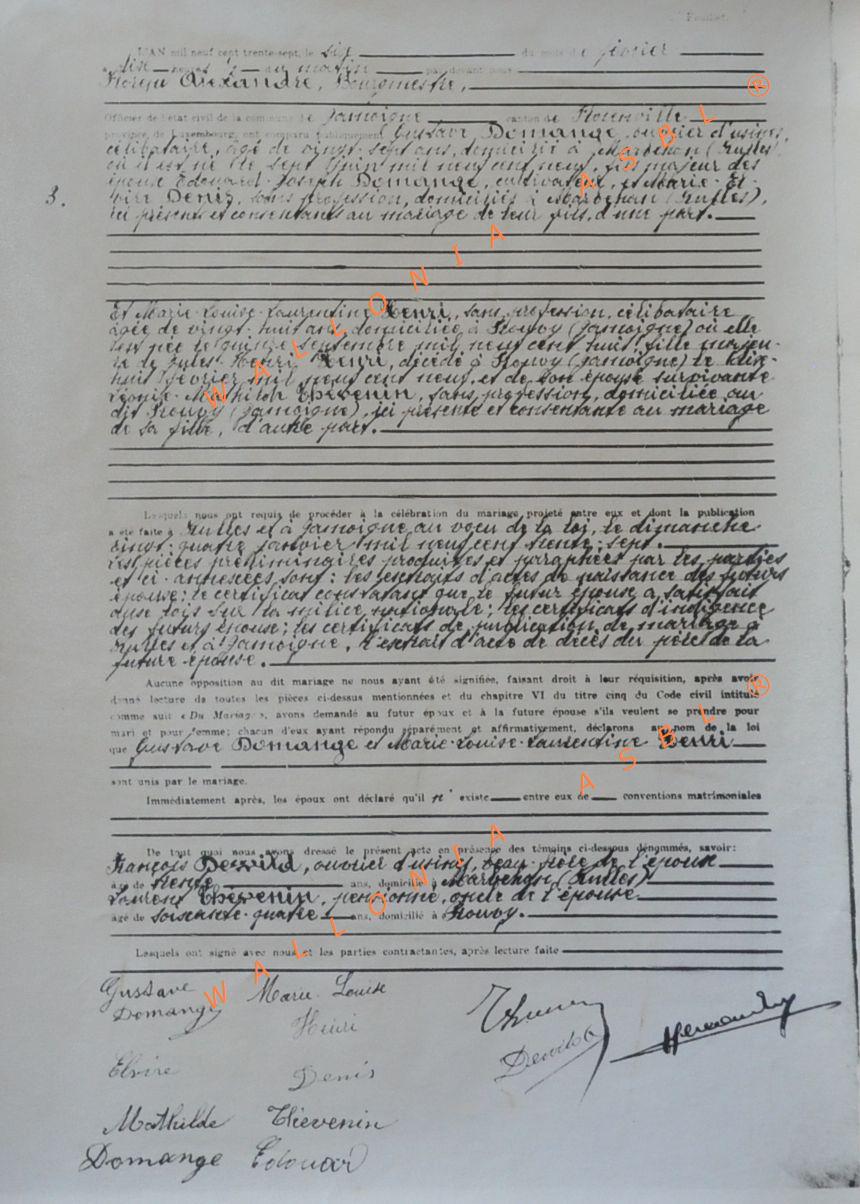 Feuillet.
L'AN mil neuf cent trente-sept, le six du mois de février
à dix heures ½ du matin par devant nous
Alexandre, Bourgmestre,
Officier de l'état civil de la commune de Jamoigne canton de Florenville
province de Luxembourg, ont comparu publiquement Gustave Domange, ouvrier d'usines,
célibataire, âgé de vingt-sept ans, domicilié à Marbehan (Rulles)
où il est né le sept juin mil neuf cent neuf, fils majeur des
époux Edouard-Joseph Domange, cultivateur, et Marie-El-
3.
vire Denis, sans profession, domiciliés à Marbehan (Rulles),
ici présents et consentants au mariage de leur fils, d'une part.
Et Marie-Louise-Laurentine Henri, sans profession, célibataire
âgée de vingt-huit ans, domiciliée à Prouvy (Jamoigne) où elle
est née le quinze septembre mil neuf cent huit, fille majeu-
re de Jules-Henri Henri, décédé à Prouvy (Jamoigne) le dix-
huit février mil neuf cent neuf, et de son épouse survivante
Mathilde Thévenin, sans profession, domiciliée au
dit Prouvy (Jamoigne), ici présente et consentante au mariage
de sa fille, d'autre part.
Lesquels nous ont requis de procéder à la célébration du mariage projeté entre eux et dont la publication
a été faite à Rulles et à Jamoigne au voeu de la loi, le dimanche
vingt-quatre janvier mil neuf cent trente-sept.
Les pièces préliminaires produites et paraphées par les parties
et ci-annexées sont: les extraits d'actes de naissance des futurs
épouse; le certificat constatant que le futur épouse a satisfait
aux lois sur la milice nationale; les certificats d'indigence
des futurs épouse; les certificats de publication de mariage à
Rulles et à Jamoigne, l'extrait d'acte de décès du père de la
future épouse.
Aucune opposition au dit mariage ne nous ayant été signifiée, faisant droit à leur réquisition, après avoir
donné lecture de toutes les pièces ci-dessus mentionnées et du chapitre VI du titre cinq du Code civil intitulé
comme suit « Du Mariage », avons demandé au futur époux et à la future épouse s'ils veulent se prendre pour
mari et pour femme; chacun d'eux ayant répondu séparément et affirmativement, déclarons au nom de la loi
que Gustave Domange et Marie-Louise-Laurentine Henri
sont unis par le mariage.
Immédiatement après, les époux ont déclaré qu'il n' existe entre eux de conventions matrimoniales
De tout quoi nous avons dressé le présent acte en présence des témoins ci-dessous dénommés, savoir:
François Dewild, ouvrier d'usines, beau-frère de l'épouse
âgé de trente ans, domicilié à Marbehan (Rulles)
Laurent Thévenin, pensionné, oncle de l'épouse
âgé de soixante-quatre ans, domicilié à Prouvy.
Lesquels ont signé avec nous et les parties contractantes, après lecture faite
Gustave Marie-Louise
Domange Henri
Elvire Denis
Dewild
Mathilde Thévenin
Domange Edouard
WALLONIA ASBL ®
WALLONIA ASBL ®